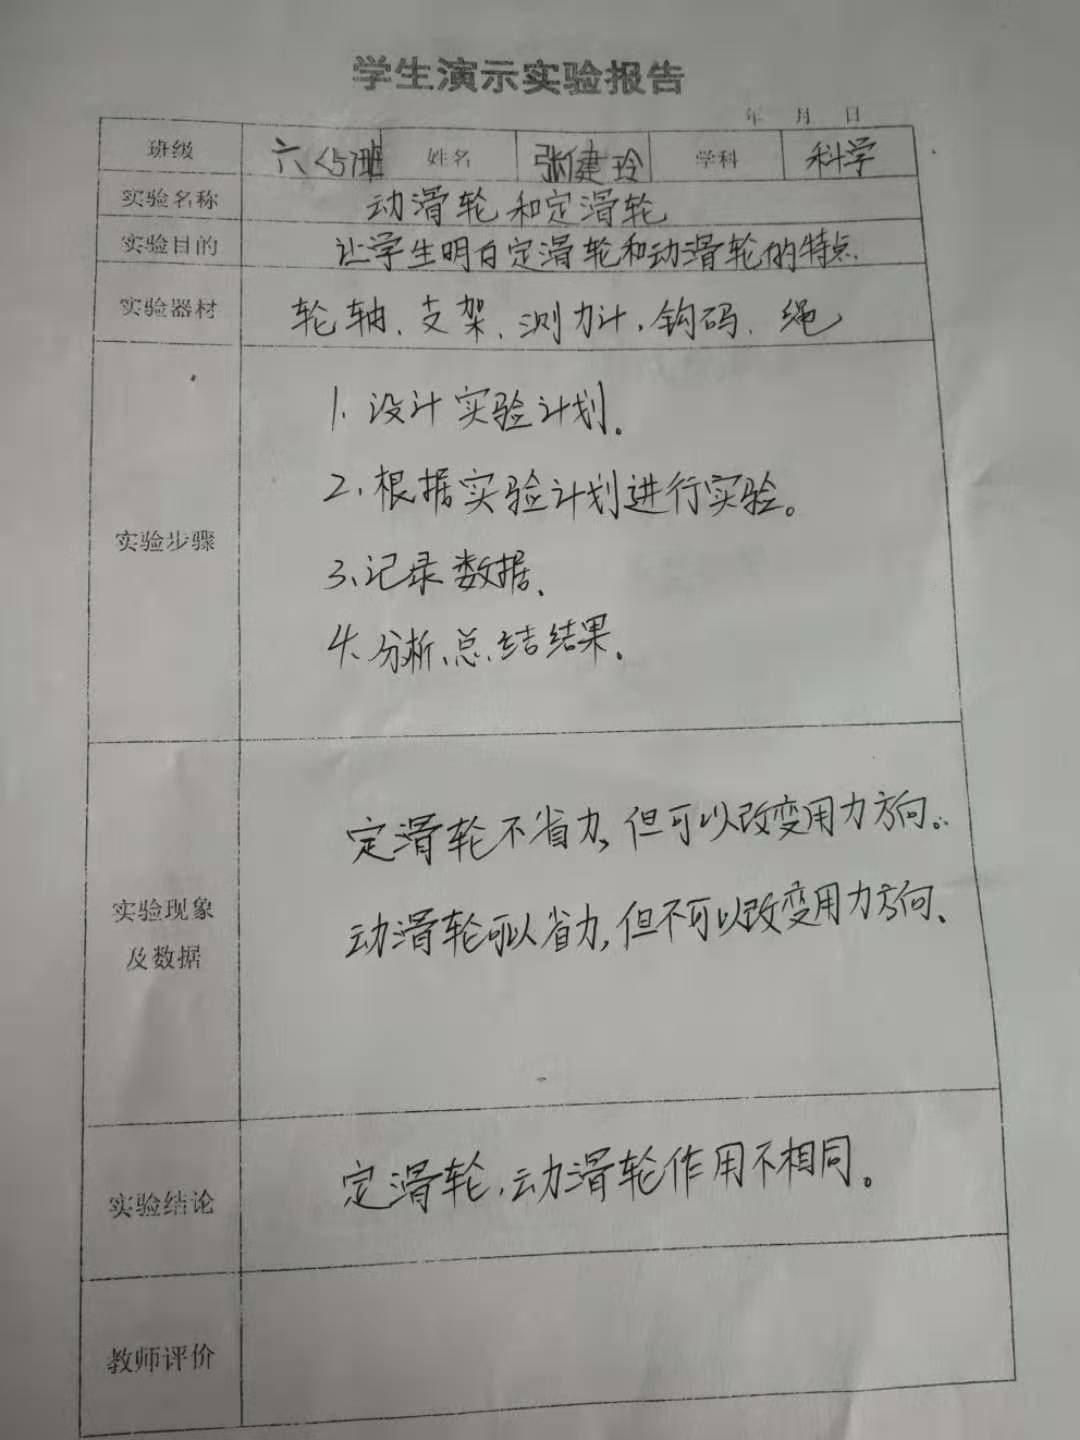 学生演示实验报告
年 月 日
班级 六<5>班 姓名 张健玲 学科 科学
实验名称 动滑轮和定滑轮
实验目的 让学生明白定滑轮和动滑轮的特点.
实验器材 轮轴、支架、测力计、钩码、绳
实验步骤
1、设计实验计划。
2、根据实验计划进行实验。
3、记录数据、
4、分析、总、结结果。
实验现象
及数据
定滑轮不省力,但可以改变用力方向。
动滑轮可以省力,但不可以改变用力方向、
实验结论 定滑轮、动滑轮作用不相同。
教师评价